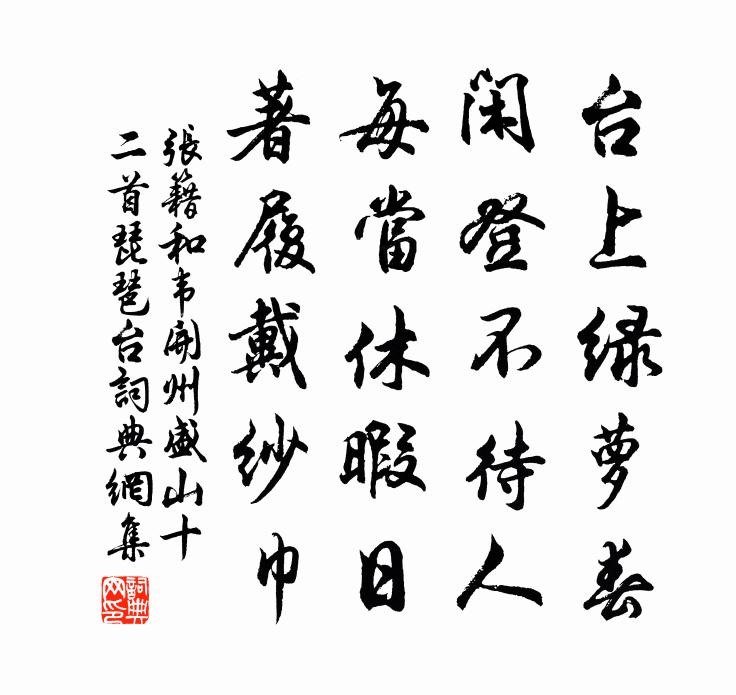 台上绿萝春
闲登不待人
每當休暇日
著履戴纱巾
張籍和韦開州盛山十
二首琵琶台詞典網集
詞典網印